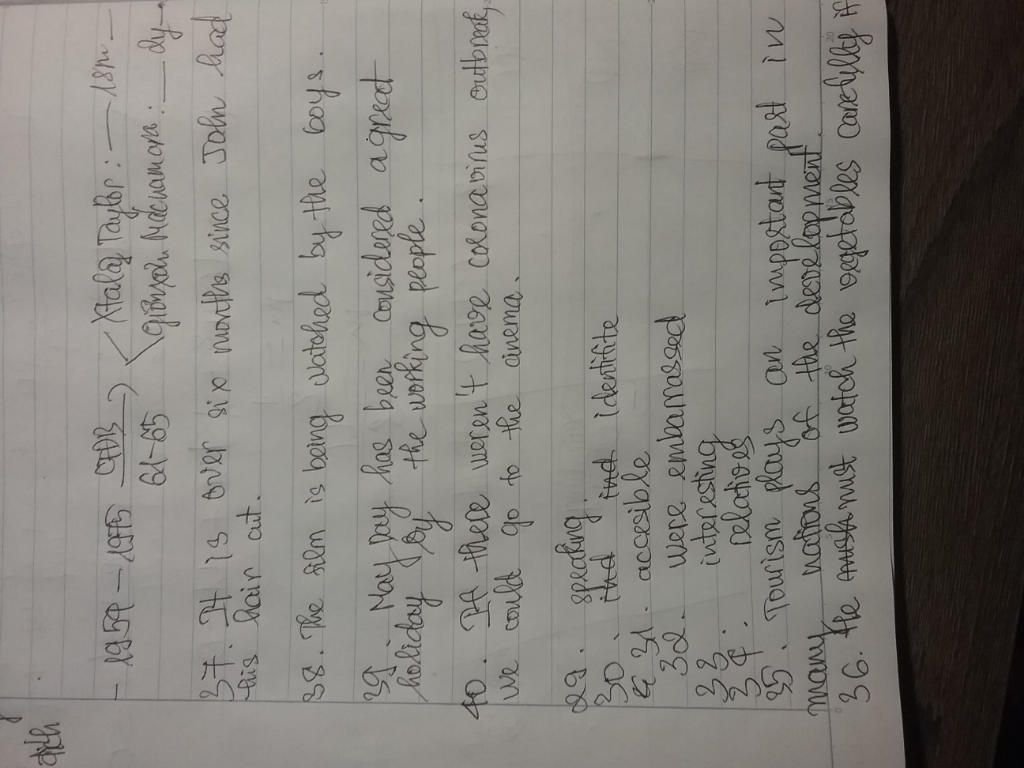 - 1959 - 1975
61-65
37. It is over six months since John had
his hair cut.
38. The film is being watched by the boys.
39. May Day has been considered a great
holiday by the working people.
40. If there weren't have coronavirus outbreak,
we could go to the cinema.
29. speaking.
30. identifite
31. accesible
32. were embarrassed
33. interesting
34. relatives
35. Tourism plays an important part in
many nations of the development.
36. the must watch the vegetables carefylly if